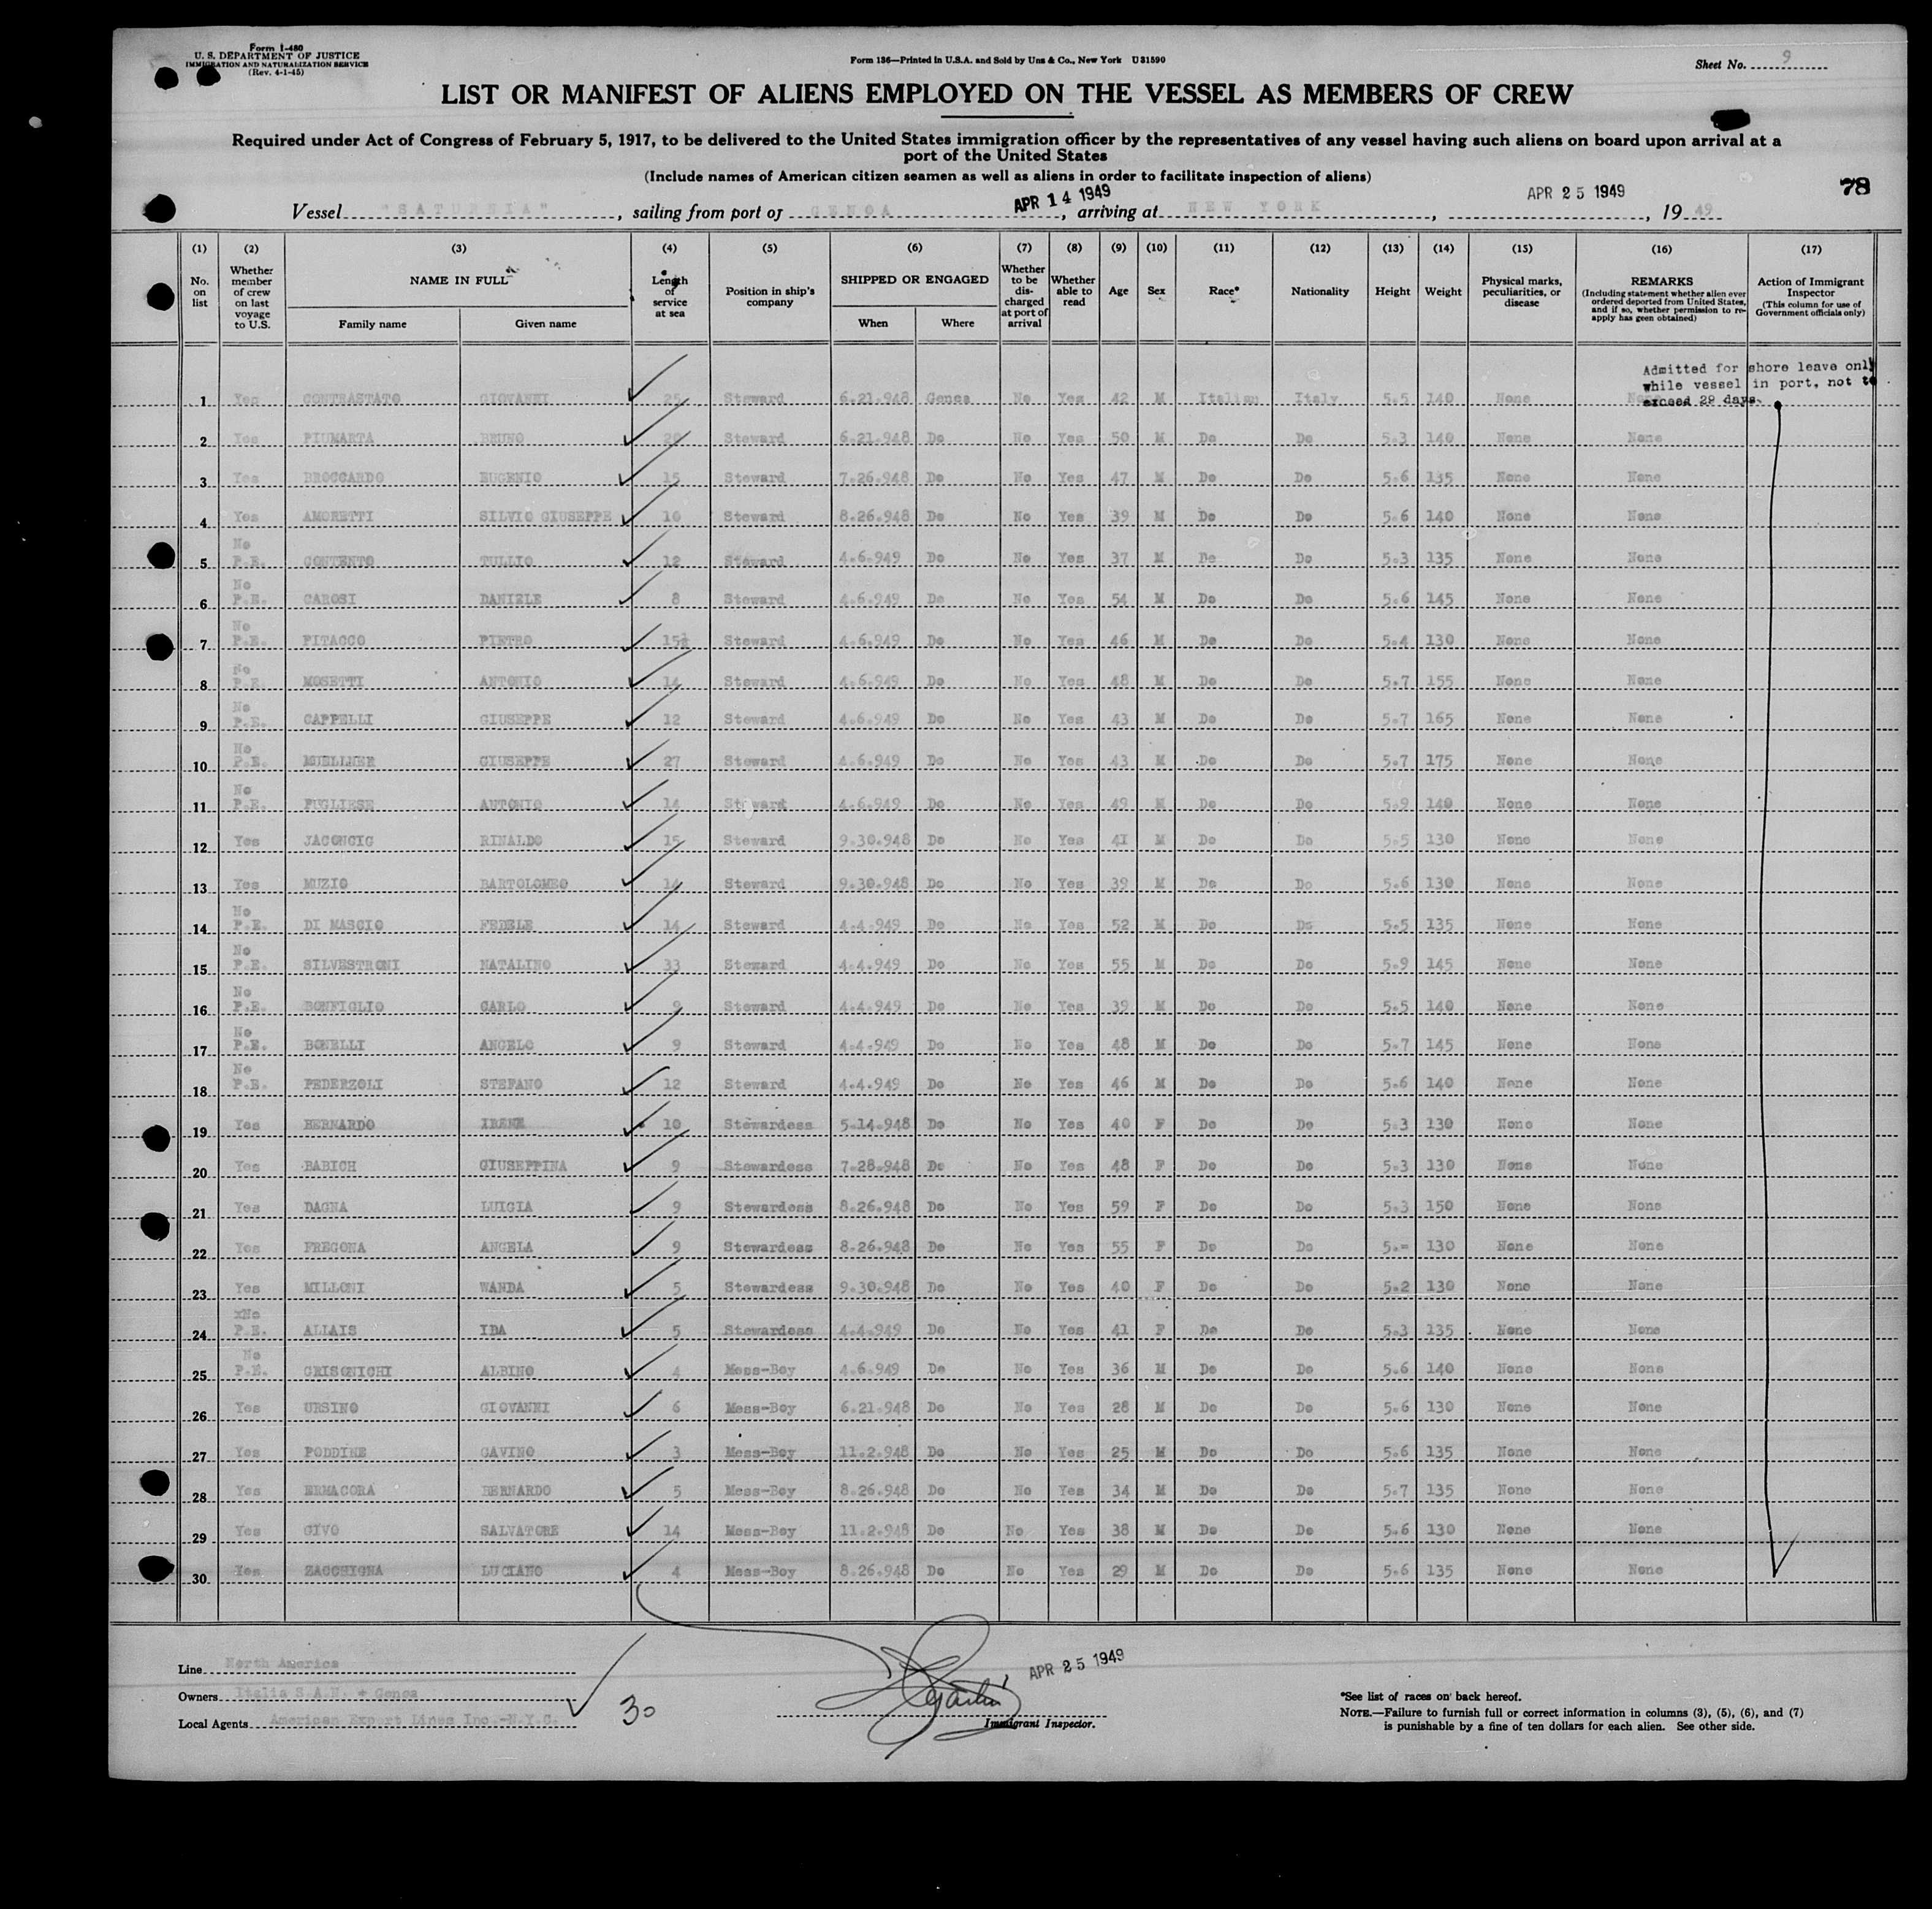 Form I-480
U. S. DEPARTMENT OF JUSTICE
IMMIGRATION AND NATURALIZATION SERVICE
(Rev. 4-1-45)
Form 136—Printed in U.S.A. and Sold by Unz & Co., New York U31590
Sheet No. 9
LIST OR MANIFEST OF ALIENS EMPLOYED ON THE VESSEL AS MEMBERS OF CREW
Required under Act of Congress of February 5, 1917, to be delivered to the United States immigration officer by the representatives of any vessel having such aliens on board upon arrival at a
port of the United States
(Include names of American citizen seamen as well as aliens in order to facilitate inspection of aliens)
78
Vessel "SATURNIA", sailing from port of GENOA APR 14 1949, arriving at NEW YORK, APR 25 1949, 19 49
(1) (2) (3) (4) (5) (6) (7) (8) (9) (10) (11) (12) (13) (14) (15) (16) (17)
No. on list
Whether member of crew on last voyage to U.S.
NAME IN FULL
Family name
Given name
Length of service at sea
Position in ship's company
SHIPPED OR ENGAGED
When
Where
Whether to be discharged at port of arrival
Whether able to read
Age
Sex
Race*
Nationality
Height
Weight
Physical marks, peculiarities, or disease
REMARKS
(Including statement whether alien ever ordered deported from United States, and if so, whether permission to re-apply has geen obtained)
Action of Immigrant Inspector
(This column for use of Government officials only)
Admitted for shore leave only
while vessel in port, not to
exceed 29 days.
1 Yes CONTRASTATO GIOVANNI 25 Steward 6.21.948 Genoa No Yes 42 M Italian Italy 5.5 140 None None
2 Yes PIUMARTA BRUNO 20 Steward 6.21.948 Do No Yes 50 M Do Do 5.3 140 None None
3 Yes BROCCARDO EUGENIO 15 Steward 7.26.948 Do No Yes 47 M Do Do 5.6 135 None None
4 Yes AMORETTI SILVIO GIUSEPPE 16 Steward 8.26.948 Do No Yes 39 M Do Do 5.6 140 None None
5 No P.E. CONTENTO TULLIO 12 Steward 4.6.949 Do No Yes 37 M Do Do 5.3 135 None None
6 No P.E. CAROSI DANIELE 8 Steward 4.6.949 Do No Yes 54 M Do Do 5.6 145 None None
7 No P.E. PITACCO PIETRO 15½ Steward 4.6.949 Do No Yes 46 M Do Do 5.4 130 None None
8 No P.E. MOSETTI ANTONIO 14 Steward 4.6.949 Do No Yes 48 M Do Do 5.7 155 None None
9 No P.E. CAPPELLI GIUSEPPE 12 Steward 4.6.949 Do No Yes 43 M Do Do 5.7 165 None None
10 No P.E. MUELLNER GIUSEPPE 27 Steward 4.6.949 Do No Yes 43 M Do Do 5.7 175 None None
11 No P.E. PUGLIESE ANTONIO 14 Steward 4.6.949 Do No Yes 49 M Do Do 5.9 140 None None
12 Yes JACONCIC RINALDO 15 Steward 9.30.948 Do No Yes 41 M Do Do 5.5 130 None None
13 Yes MUZIO BARTOLOMEO 14 Steward 9.30.948 Do No Yes 39 M Do Do 5.6 130 None None
14 No P.E. DI MASCIO FEDELE 14 Steward 4.4.949 Do No Yes 52 M Do Do 5.5 135 None None
15 No P.E. SILVESTRONI NATALINO 33 Steward 4.4.949 Do No Yes 55 M Do Do 5.9 145 None None
16 No P.E. BONFIGLIO CARLO 9 Steward 4.4.949 Do No Yes 39 M Do Do 5.5 140 None None
17 No P.E. BONELLI ANGELO 9 Steward 4.4.949 Do No Yes 48 M Do Do 5.7 145 None None
18 No P.E. PEDERZOLI STEFANO 12 Steward 4.4.949 Do No Yes 46 M Do Do 5.6 140 None None
19 Yes BERNARDO IRENE 10 Stewardess 5.14.948 Do No Yes 40 F Do Do 5.3 130 None None
20 Yes BABICH GIUSEPPINA 9 Stewardess 7.28.948 Do No Yes 48 F Do Do 5.3 130 None None
21 Yes DAGNA LUIGIA 9 Stewardess 8.26.948 Do No Yes 59 F Do Do 5.3 150 None None
22 Yes FREGONA ANGELA 9 Stewardess 8.26.948 Do No Yes 55 F Do Do 5.= 130 None None
23 Yes MILLONI WANDA 5 Stewardess 9.30.948 Do No Yes 40 F Do Do 5.2 130 None None
24 xNo P.E. ALLAIS IDA 5 Stewardess 4.4.949 Do No Yes 41 F Do Do 5.3 135 None None
25 No P.E. GRISONICHI ALBINO 4 Mess-Boy 4.6.949 Do No Yes 36 M Do Do 5.6 140 None None
26 Yes URSINO GIOVANNI 6 Mess-Boy 6.21.948 Do No Yes 28 M Do Do 5.6 130 None None
27 Yes PODDINE GAVINO 3 Mess-Boy 11.2.948 Do No Yes 25 M Do Do 5.6 135 None None
28 Yes ERMACORA BERNARDO 5 Mess-Boy 8.26.948 Do No Yes 34 M Do Do 5.7 135 None None
29 Yes GIVO SALVATORE 14 Mess-Boy 11.2.948 Do No Yes 38 M Do Do 5.6 130 None None
30 Yes ZACCHIGNA LUCIANO 4 Mess-Boy 8.26.948 Do No Yes 29 M Do Do 5.6 135 None None
Line North America
Owners Italia S.A.N. + Genoa
Local Agents American Export Lines Inc.-N.Y.C.
30
APR 25 1949
Immigrant Inspector.
*See list of races on back hereof.
NOTE.—Failure to furnish full or correct information in columns (3), (5), (6), and (7)
is punishable by a fine of ten dollars for each alien. See other side.